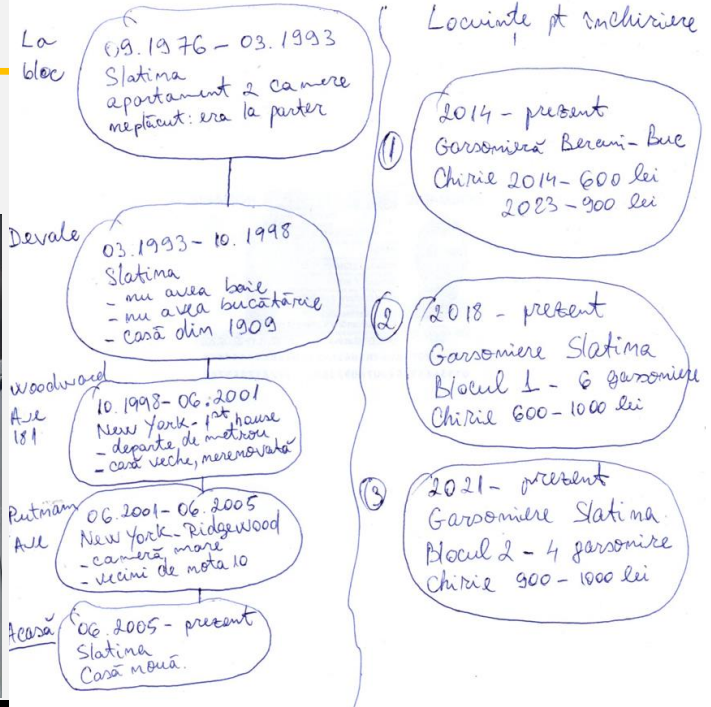 La
bloc
09.1976 - 03.1993
Slatina
apartament 2 camere
neplăcut: era la parter
Devale
03.1993 - 10.1998
Slatina
- nu avea baie
- nu avea bucătărie
- casă din 1909
Woodward
Ave
181
10.1998 - 06.2001
New York - 1st hause
- departe de metrou
- casă veche, nerenovată
Putnam
Ave
06.2001 - 06.2005
New York - Ridgewood
- cameră mare
- vecini de nota 10
Acasă
06.2005 - prezent
Slatina
Casă nouă.
Locuințe pt închiriere
1
2014 - prezent
Garsonieră Berceni - Buc
Chirie 2014 - 600 lei
2023 - 900 lei
2
2018 - prezent
Garsoniere Slatina
Blocul 1 - 6 garsoniere
Chirie 600 - 1000 lei
3
2021 - prezent
Garsoniere Slatina
Blocul 2 - 4 garsonire
Chirie 900 - 1000 lei